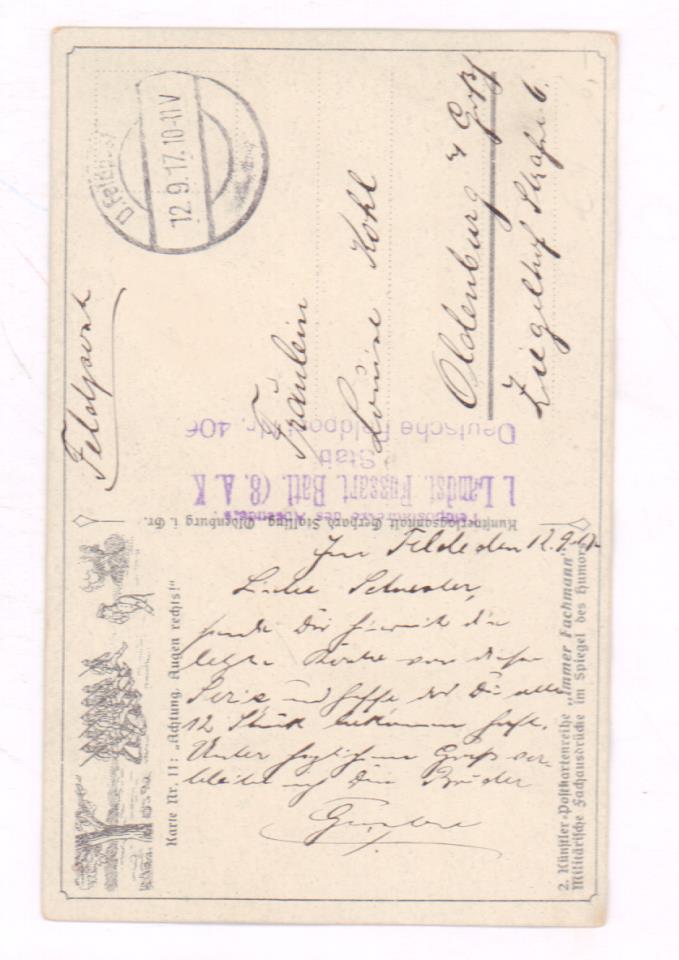 Feldpost
D. Feldpost
12.9.17.10-11V
Fräulein
Louise Kohl
Oldenburg i/ Grß
Ziegelhof Straße 6.
Deutsche Feldpost Nr. 406
Stab
1. Landst. Fussart. Batl. (8. A. K
Kunstverlagsanstalt Gerhard Stalling, Oldenburg i. Gr.
Im Felde den 12.9.17
Liebe Schwester,
sende Dir hiermit die
letzte Karte von dieser
Serie und hoffe daß Du alle
12 Stück bekommen hast.
Unter herzlichem Gruß ver-
bleibe ich Dein Bruder
Gustav
Karte Nr. 11: „Achtung, Augen rechts!“
2. Künstler-Postkartenreihe „Immer Fachmann“
Militärische Fachausdrücke im Spiegel des Humors